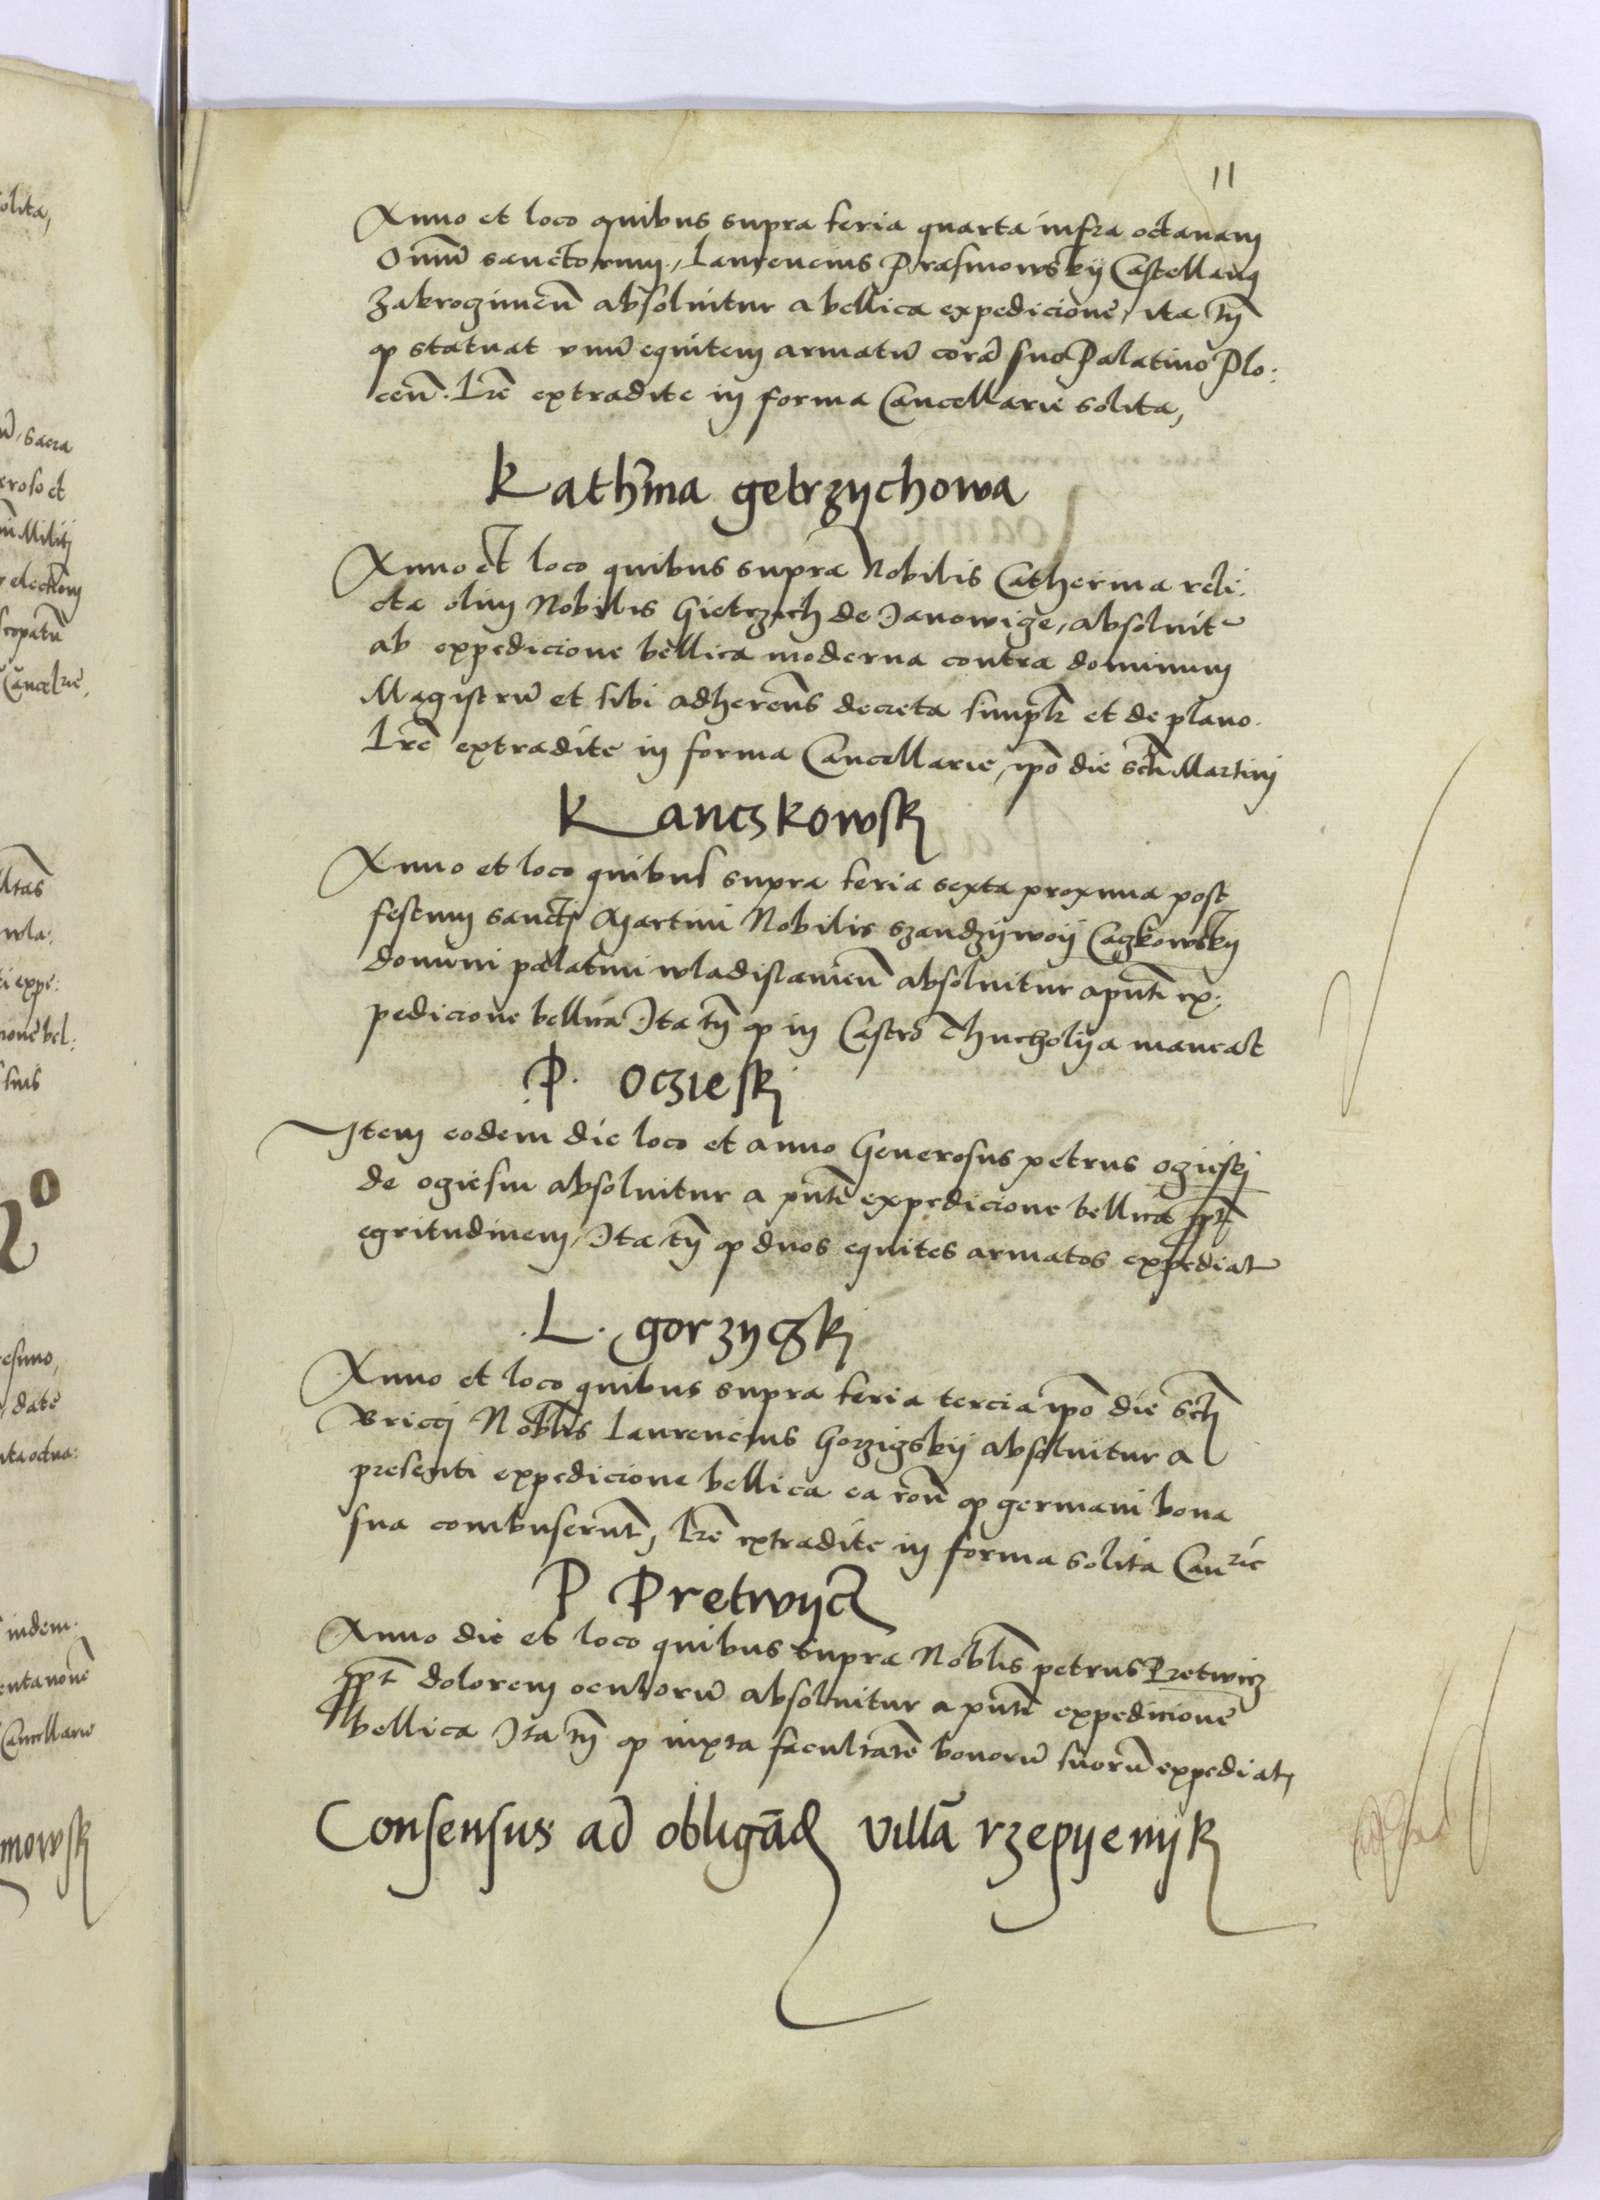 11
Anno et loco quibus supra feria quarta infra octavam
Omniu sanctorum, Laurencius Prasmowskij Castellanus
Zakroczimen absolvitur a bellica expedicione, ita tn
q statuat unu equitem armatu cora suo Palatino Plo:
cen. Lre extradite in forma Cancellarie solita,
Kathrina getrzychowa
Anno et loco quibus supra Nobilis Catherina reli:
cta olim Nobilis Gietrzich de Janowicze, absolvit
ab expedicione bellica moderna contra dominum
Magistru et sibi adherens decreta simplr et de plano.
Lre extradite in forma Cancellarie, ipo die scti Martini
Kanczkowski
Anno et loco quibus supra feria sexta proxima post
festum sancti Martini Nobilis Szandziwoij Caczkowskij
domini palatini wladislavien absolvitur a pnti ex:
pedicione bellica Ita tn q in Castro Thucholija maneat
P. Oczieski
Item eodem die loco et anno Generosus petrus oczieskj
de oczieszin absolvitur a pnte expedicione bellica ppt
egritudinem, Ita tn q duos equites armatos expediat
.L. gorzyczki
Anno et loco quibus supra feria tercia ipo die scti
Briccij Noblis Laurencius Gorziczskij absolvitur a
presenti expedicione bellica ea ron q germani bona
sua combuserunt, Lre extradite in forma solita Canrie
P Pretwijcz
Anno die et loco quibus supra Noblis petrus Pretwicz
ppt dolorem oculoru absolvitur a pnte expedicione
bellica Ita tn q iuxta facultate bonoru suoru expediat,
Consensus ad obligand villa rzepijenijk